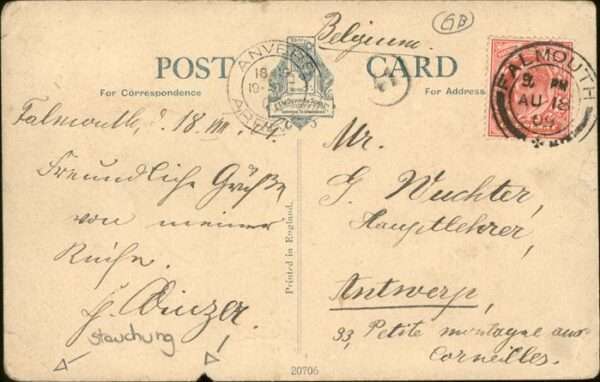 Belgium.
GB
POST CARD
For Correspondence
For Address
ANVERS
FALMOUTH
9. PM
AU 18
09
Falmouth, d. 18. VIII. 09.
Freundliche Grüße
von meiner
Reise.
stauchung
Mr.
G. Wuchter,
Hauptlehrer,
Antwerp,
33, Petite montagne aux
Corneilles.
Printed in England.
20706